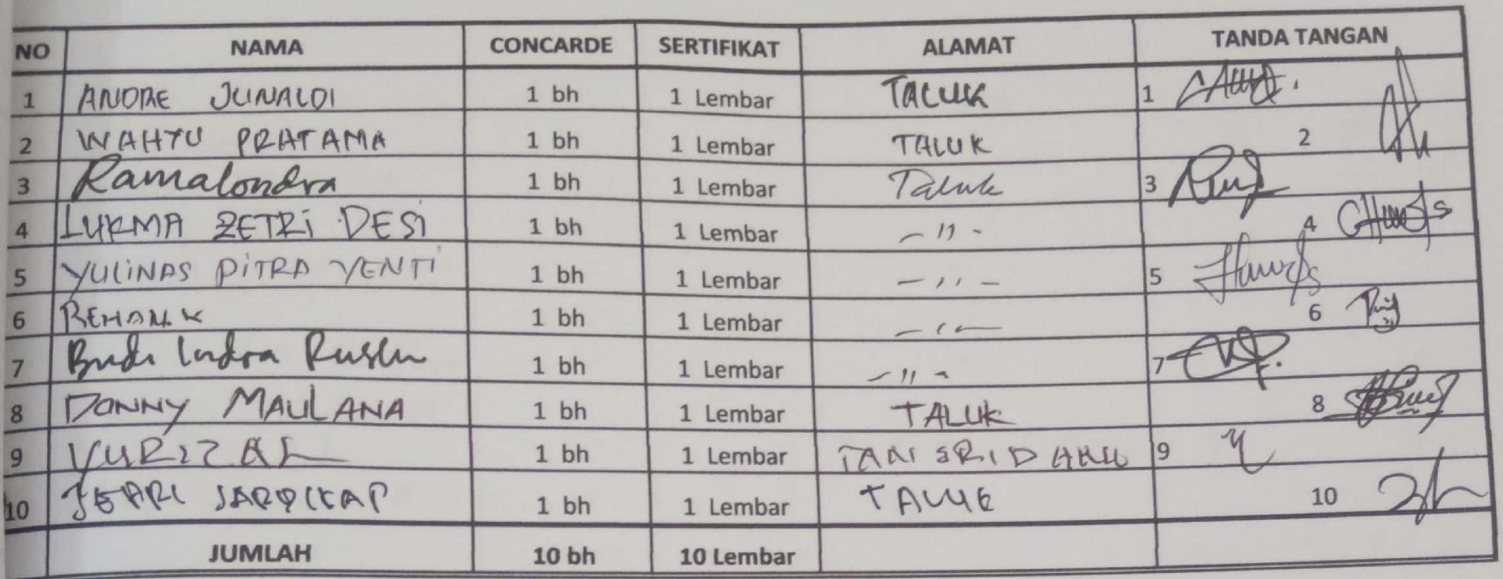 NO NAMA CONCARDE SERTIFIKAT ALAMAT TANDA TANGAN
1 ANDRE JUNALDI 1 bh 1 Lembar TALUK 1
2 WAHYU PRATAMA 1 bh 1 Lembar TALUK 2
3 Ramalondra 1 bh 1 Lembar Taluk 3
4 LUKMA ZETRI DESI 1 bh 1 Lembar - 11 - 4
5 YULINAS PITRA YENTI 1 bh 1 Lembar - 11 - 5
6 1 bh 1 Lembar 6
7 Budi Indra Ruslu 1 bh 1 Lembar - 11 - 7
8 DONNY MAULANA 1 bh 1 Lembar TALUK 8
9 YURIZAL 1 bh 1 Lembar 9
10 1 bh 1 Lembar TALUK 10
JUMLAH 10 bh 10 Lembar